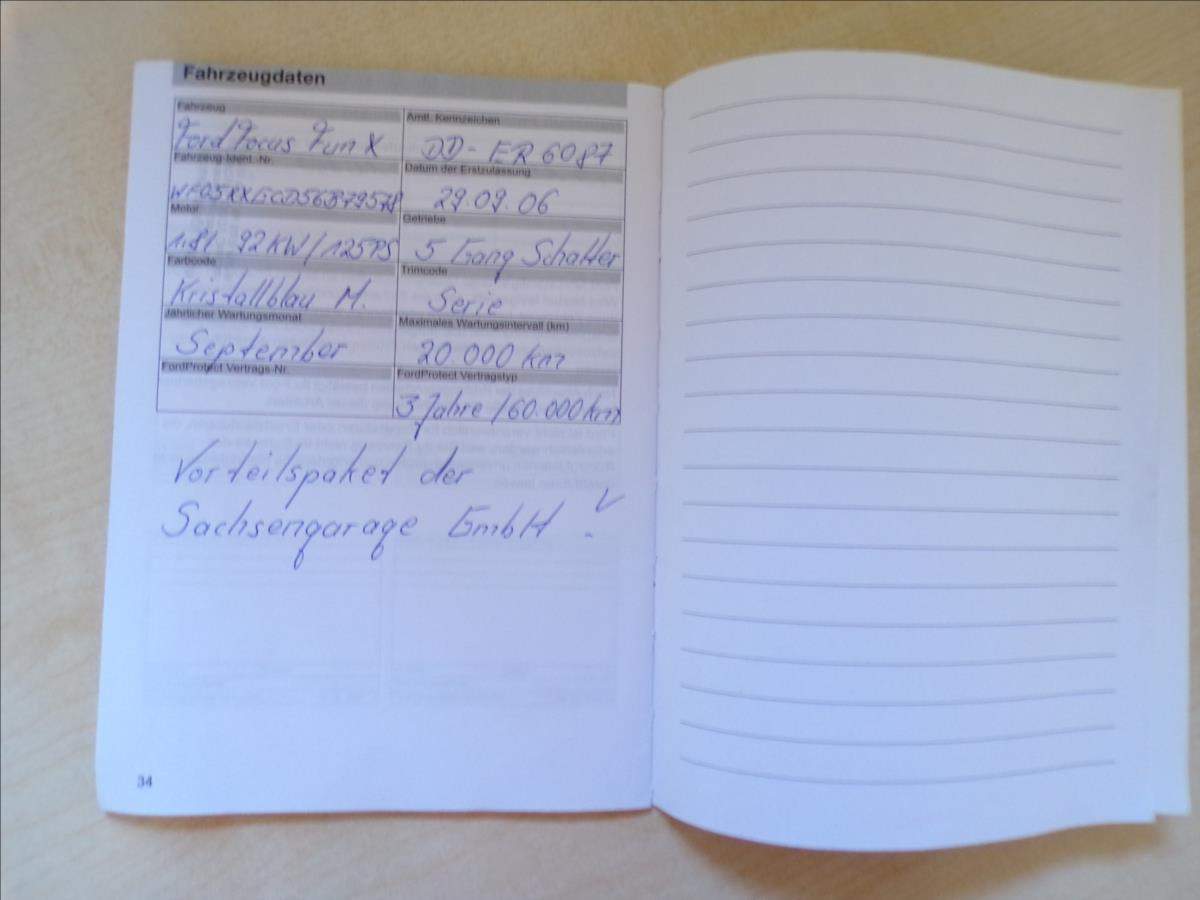 Fahrzeugdaten
Fahrzeug Amtl. Kennzeichen
Ford Focus Fun X DD - ER 6087
Fahrzeug-Ident.-Nr. Datum der Erstzulassung
29.09.06
Motor Getriebe
1.8l 92 KW / 125 PS 5 Gang Schalter
Farbcode Trimcode
Kristallblau M. Serie
Jährlicher Wartungsmonat Maximales Wartungsintervall (km)
September 20 000 km
FordProtect Vertrags-Nr. FordProtect Vertragstyp
3 Jahre / 60.000 km
Vorteilspaket der
Sachsengarage GmbH
34